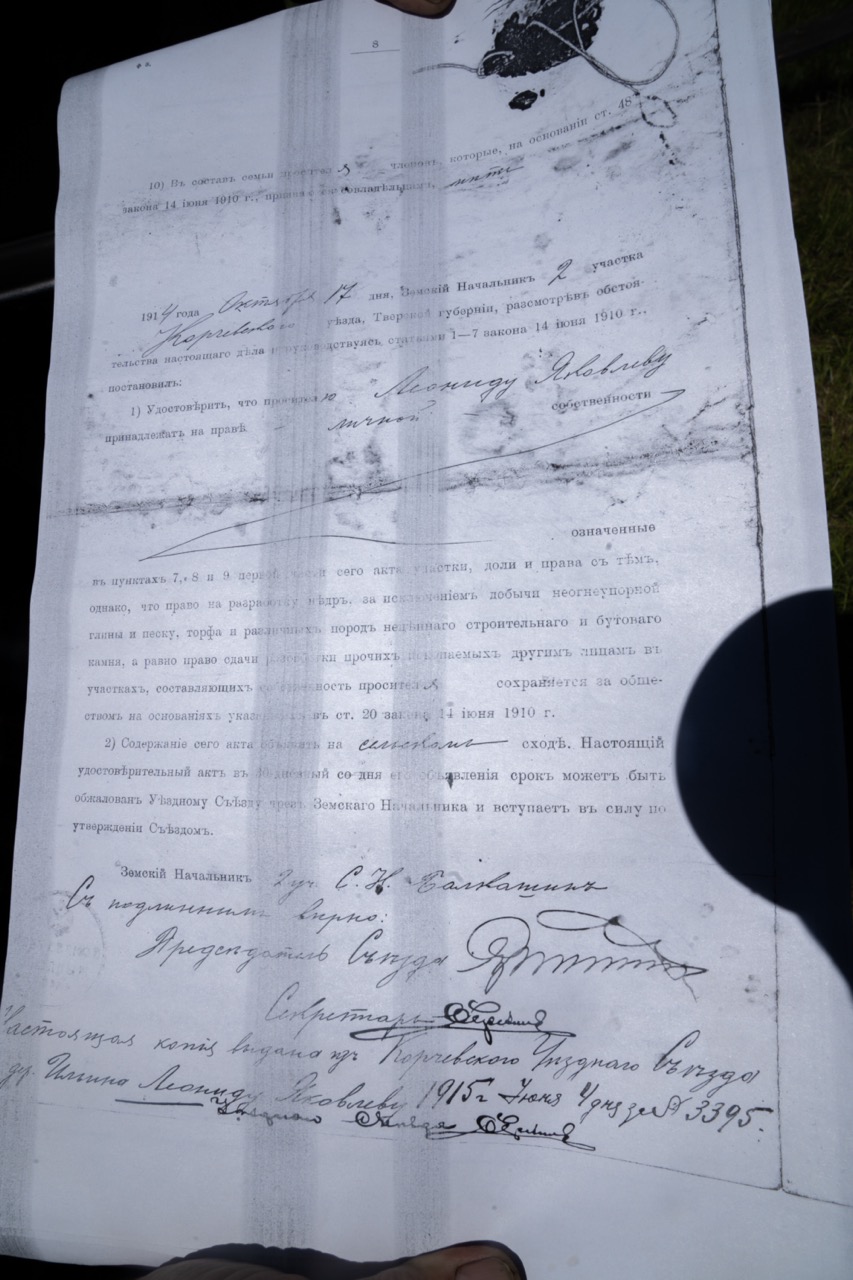 8
10) Въ составѣ семьи просителя членовъ, которые, на основаніи ст. 48
закона 14 іюня 1910 г.,
1914 года Октября 17 дня, Земскій Начальникъ 2 участка
Корчевского уѣзда, Тверской губерніи, разсмотрѣвъ обстоя-
тельства настоящаго дѣла и руководствуясь статьями 1—7 закона 14 іюня 1910 г.,
постановилъ:
1) Удостовѣрить, что просителю Леониду Яковлеву
принадлежатъ на правѣ личной собственности
означенные
въ пунктахъ 7, 8 и 9 первой части сего акта участки, доли и права съ тѣмъ,
однако, что право на разработку нѣдръ, за исключеніемъ добычи неогнеупорной
глины и песку, торфа и различныхъ породъ нецѣннаго строительнаго и бутоваго
камня, а равно право сдачи разработки прочихъ ископаемыхъ другимъ лицамъ въ
участкахъ, составляющихъ собственность просителя сохраняется за обще-
ствомъ на основаніяхъ указанныхъ въ ст. 20 закона 14 іюня 1910 г.
2) Содержаніе сего акта объявить на сельскомъ сходѣ. Настоящій
удостовѣрительный актъ въ 30-дневный со дня его объявленія срокъ можетъ быть
обжалованъ Уѣздному Съѣзду чрезъ Земскаго Начальника и вступаетъ въ силу по
утвержденіи Съѣздомъ.
Земскій Начальникъ 2 уч. С. Н. Балкашинъ
Съ подлиннымъ вѣрно:
Предсѣдатель Съѣзда
Секретарь
Настоящая копія выдана изъ Корчевского Уѣзднаго Съѣзда
дер. Ильина Леониду Яковлеву 1915 г Іюня 4 дня за № 3395.
Уѣзднаго Съѣзда